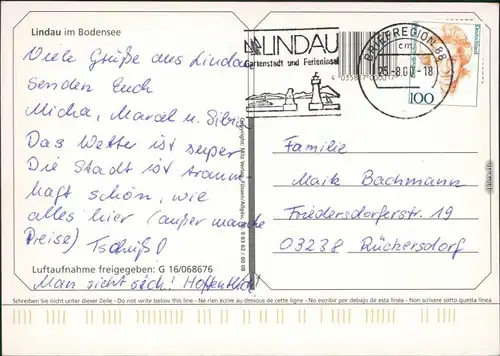 Lindau im Bodensee
Viele Grüße aus Lindau
senden Euch
Micha, Marcel u. Silvia
Das Wetter ist super
Die Stadt ist traum-
haft schön, wie
alles hier (außer manche
Preise) Tschüß!
Luftaufnahme freigegeben: G 16/068676
Man sieht sich! Hoffentlich!
LINDAU
Gartenstadt und Ferieninsel
BRIEFREGION 88
cm
25.-8.00-18
100
Familie
Maik Bachmann
Friedersdorferstr. 19
03238 Rückersdorf
Schreiben Sie nicht unter dieser Zeile - Do not write below this line - Ne rien écrire au dessous de cette ligne - No escribir por debajo de esta línea - Non scrivere sotto questa linea